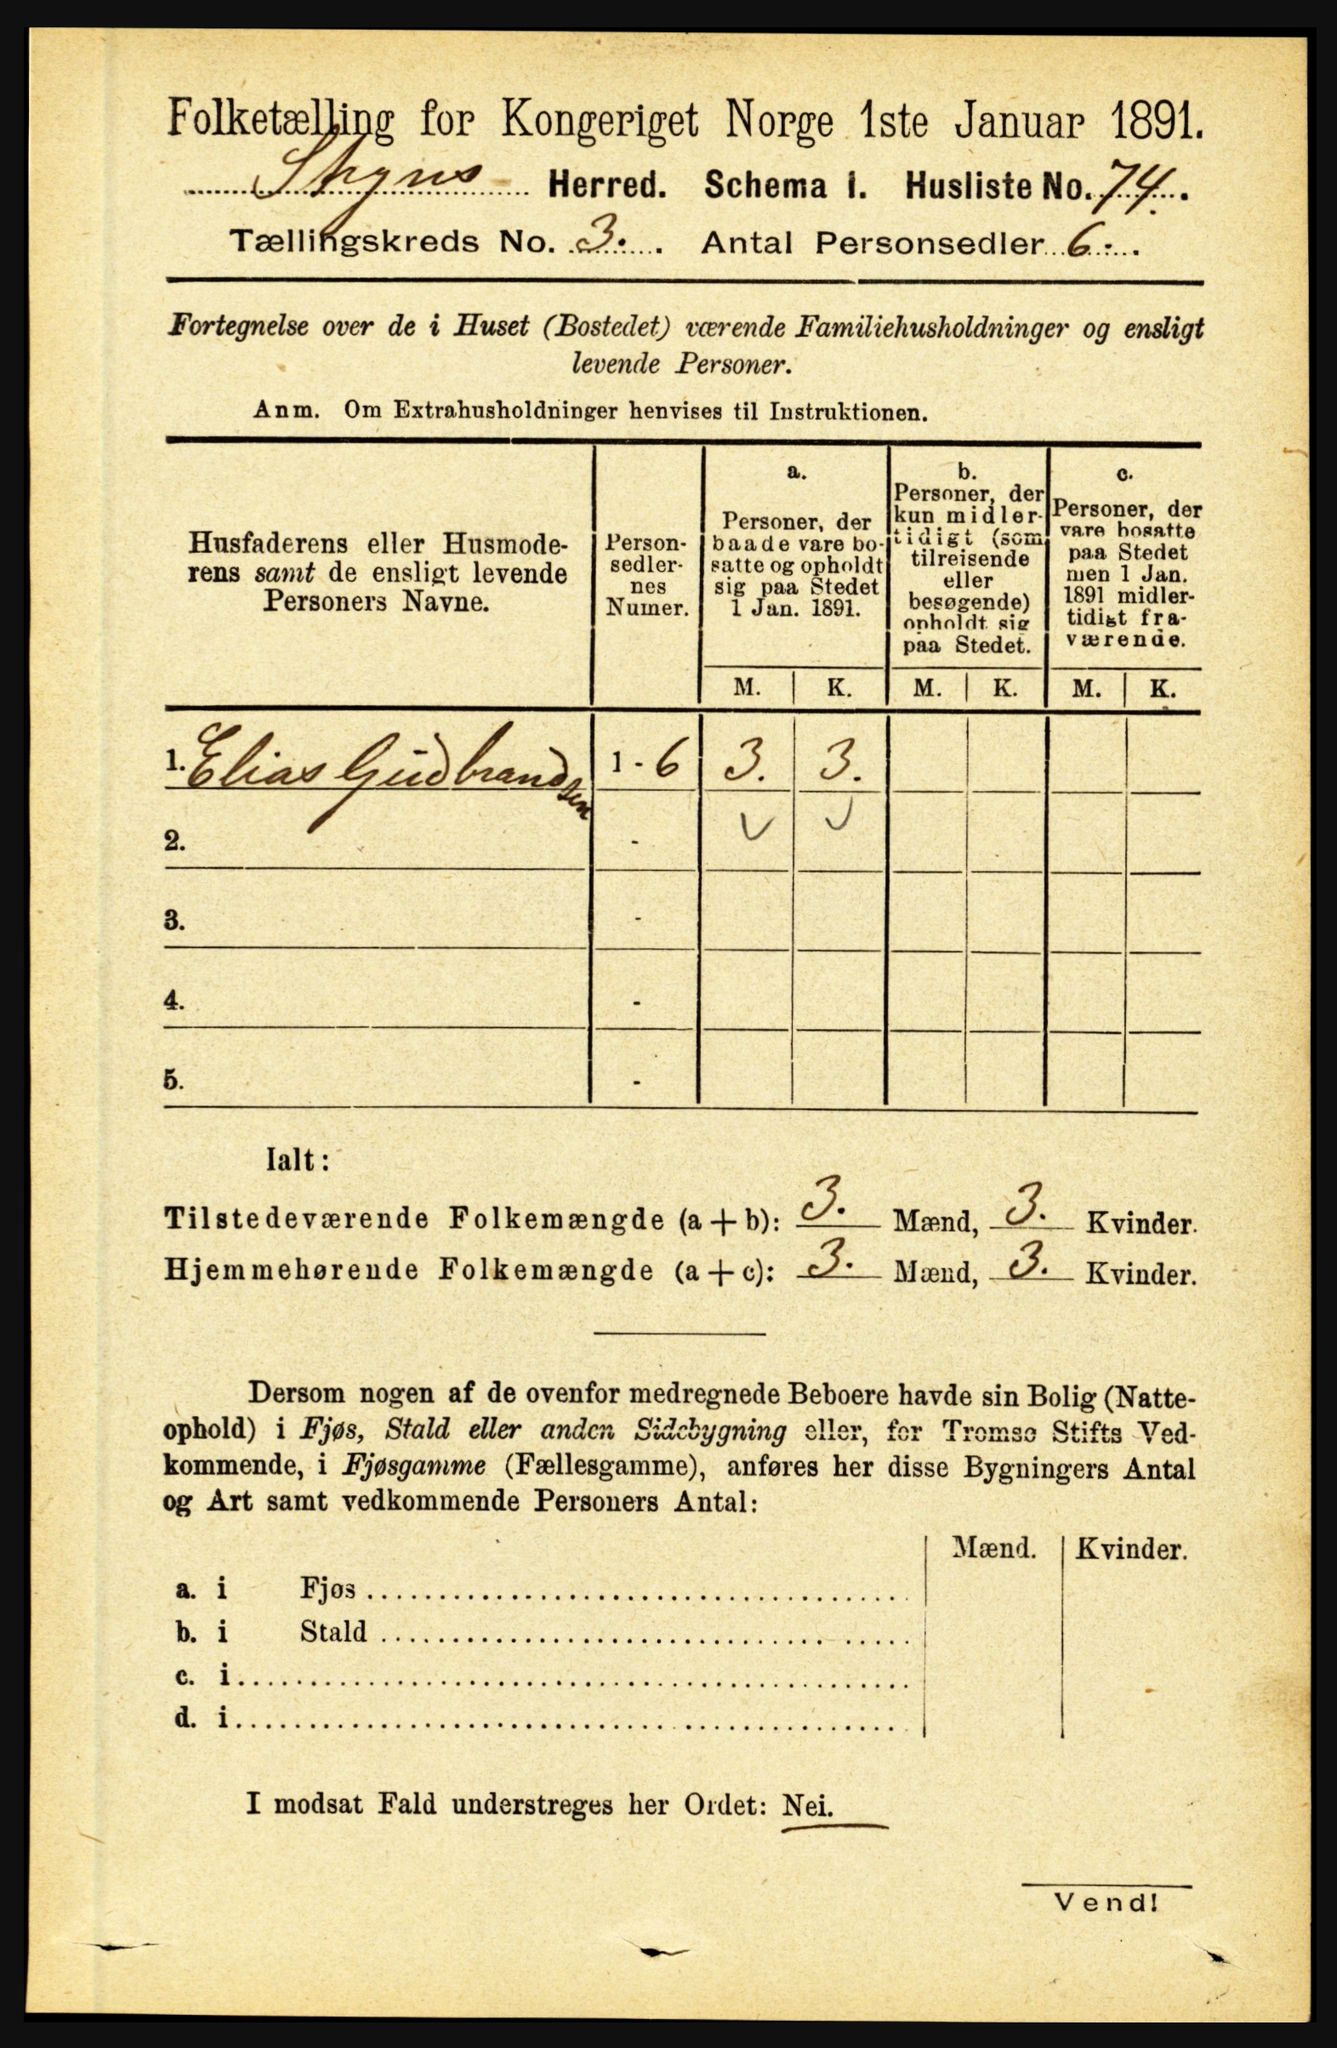 Folketælling for Kongeriget Norge 1ste Januar 1891.
Stryns Herred. Schema 1. Husliste No. 74.
Tællingskreds No. 3. Antal Personsedler 6.
Fortegnelse over de i Huset (Bostedet) værende Familiehusholdninger og ensligt
levende Personer.
Anm. Om Extrahusholdninger henvises til Instruktionen.
Husfaderens eller Husmode-
rens samt de ensligt levende
Personers Navne.
Person-
sedler-
nes
Numer.
a.
Personer, der
baade vare bo-
satte og opholdt
sig paa Stedet
1 Jan. 1891.
b.
Personer, der
kun midler-
tidigt (som
tilreisende
eller
besøgende)
opholdt sig
paa Stedet.
c.
Personer, der
vare bosatte
paa Stedet
men 1 Jan.
1891 midler-
tidigt fra-
værende.
M. K. M. K. M. K.
1. Elias Gudbrandsen 1 - 6 3. 3.
2. -
3. -
4. -
5. -
Ialt:
Tilstedeværende Folkemængde (a + b): 3. Mænd, 3. Kvinder.
Hjemmehørende Folkemængde (a + c): 3. Mænd, 3. Kvinder.
Dersom nogen af de ovenfor medregnede Beboere havde sin Bolig (Natte-
ophold) i Fjøs, Stald eller anden Sidebygning eller, for Tromsø Stifts Ved-
kommende, i Fjøsgamme (Fællesgamme), anføres her disse Bygningers Antal
og Art samt vedkommende Personers Antal:
Mænd. Kvinder.
a. i Fjøs
b. i Stald
c. i
d. i
I modsat Fald understreges her Ordet: Nei.
Vend!